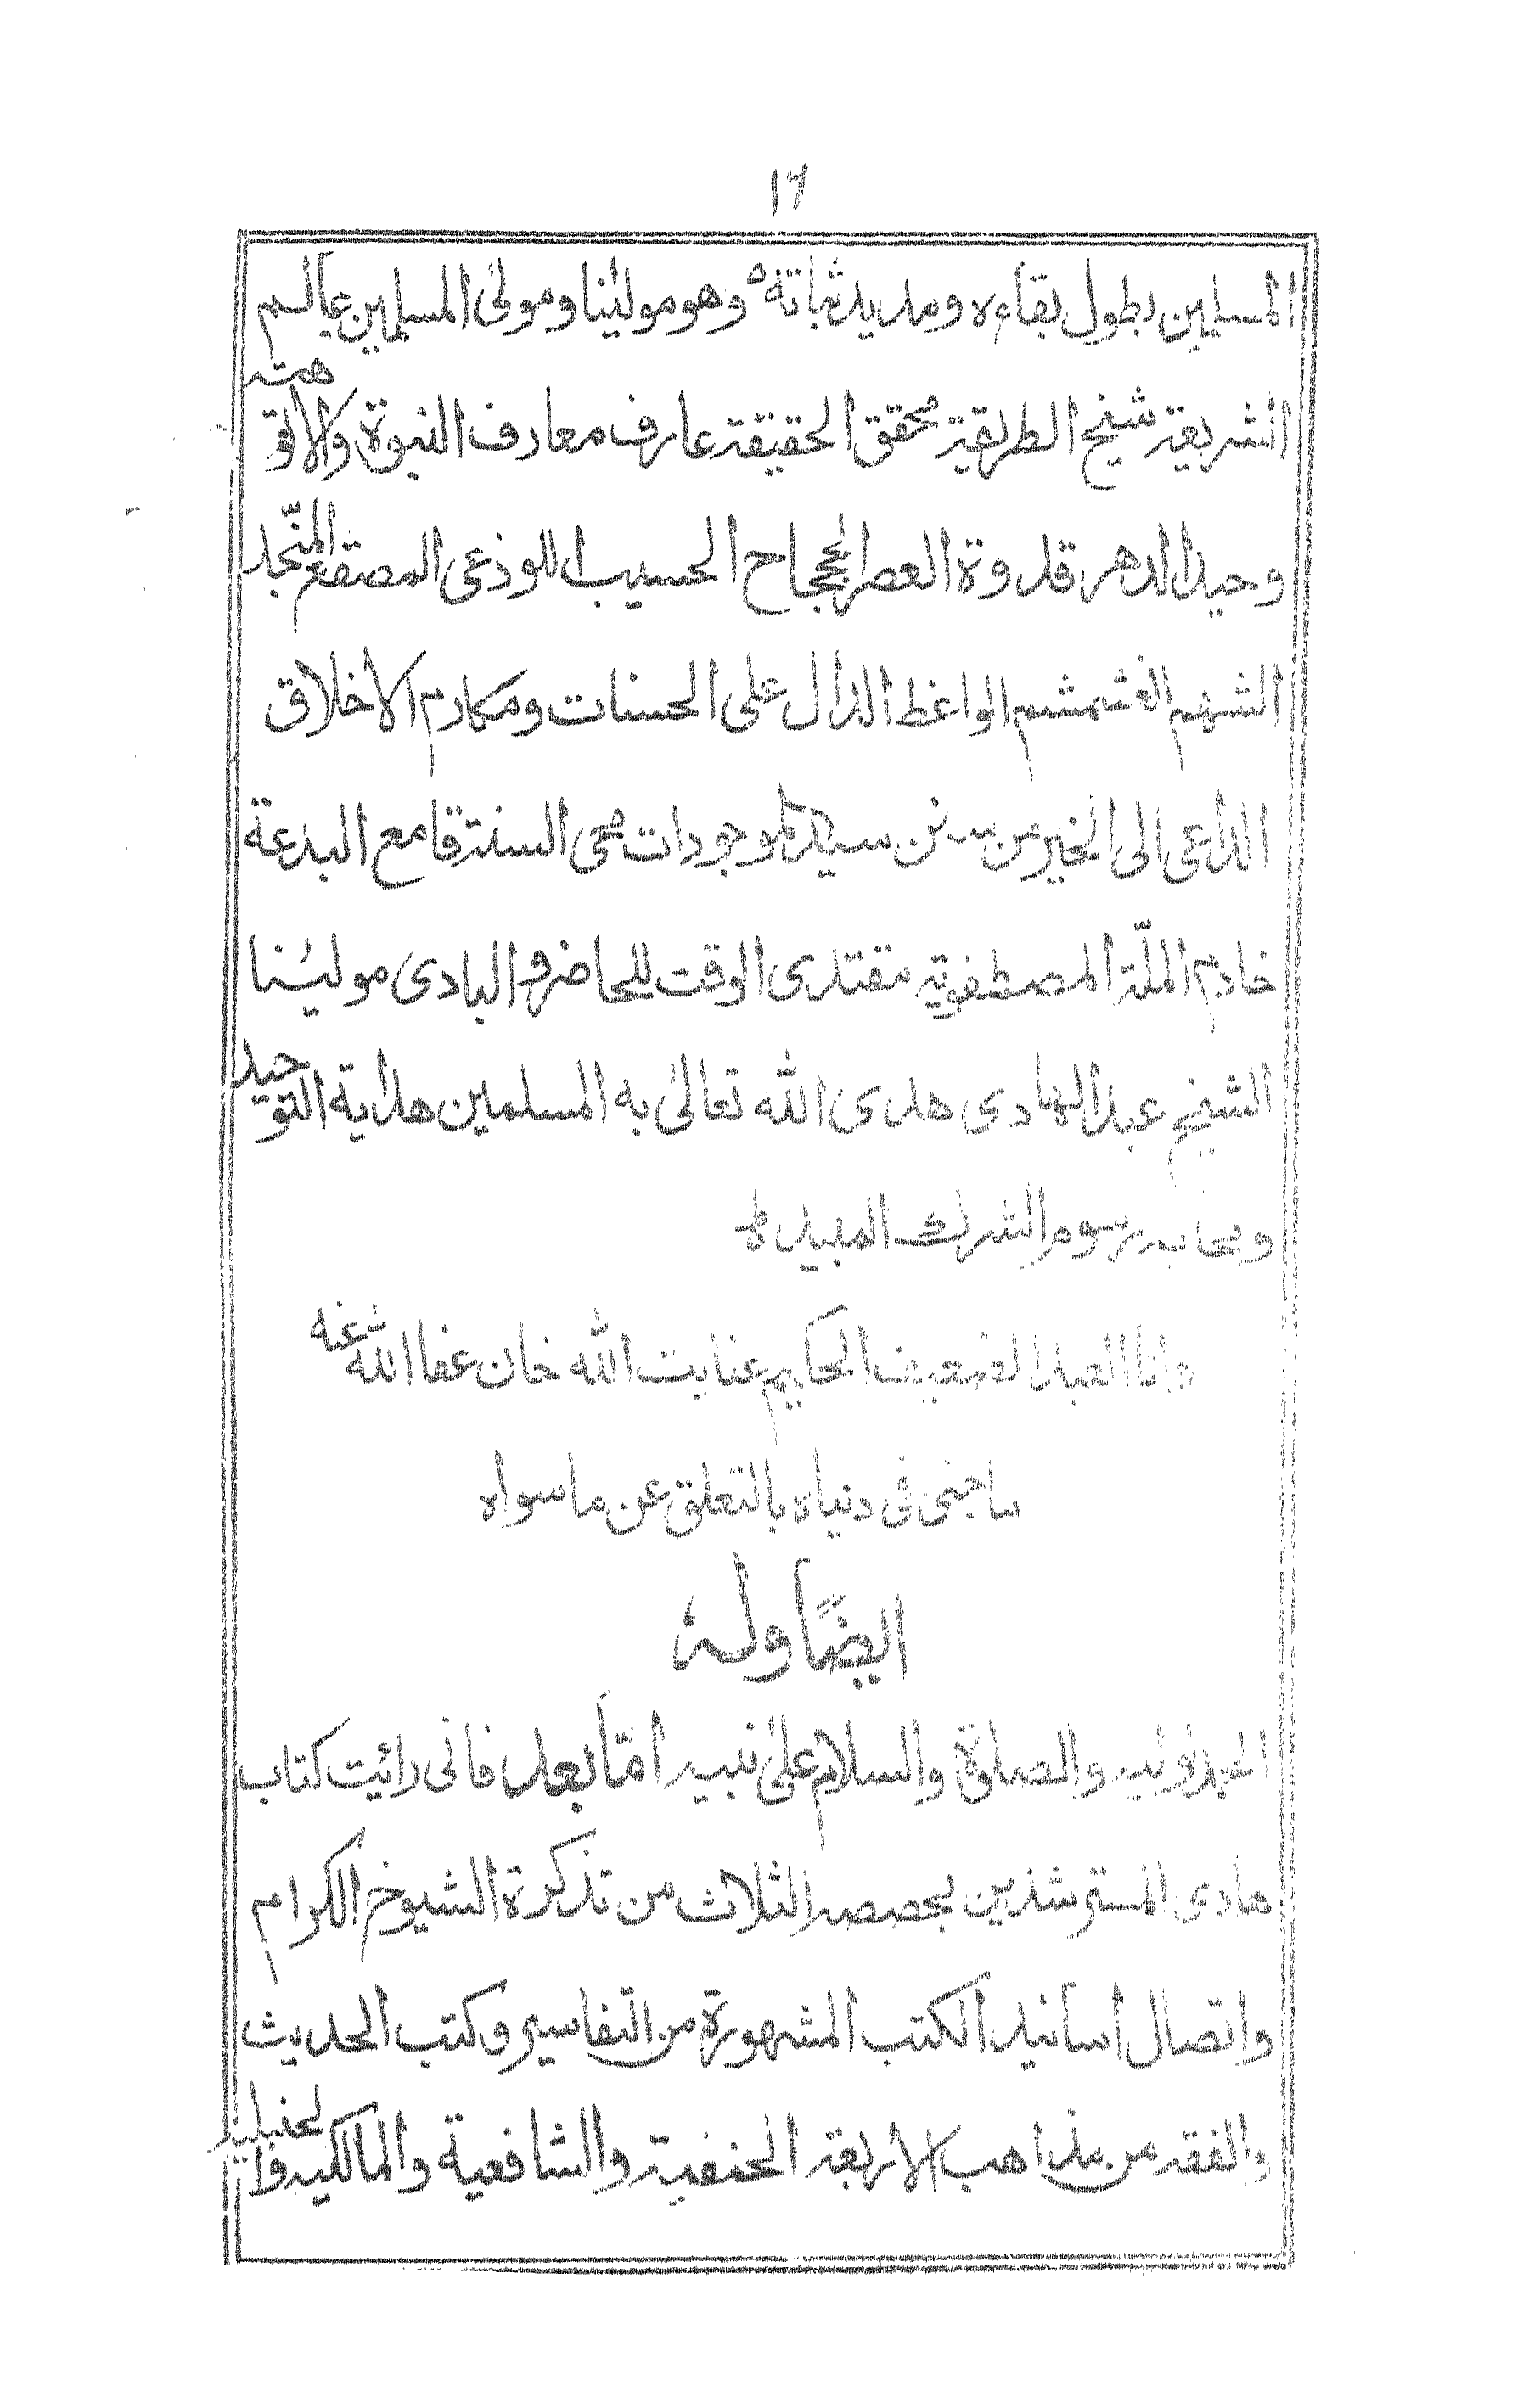 ١٦
المسلمين بطول بقاءه ومديد ثباته وهو مولينا ومولى المسلمين عالم
الشريعة شيخ الطريقة محقق الحقيقة عارف معارف النبوة والالوهية
وحيد الدهر قدوة العصر الججاح الحسيب اللوذعى المصقع المنجد
الشهم الغشمشم الواعظ الدال على الحسنات ومكارم الاخلاق
الداعى الى الخير من سنن سيد الموجودات محى السنة قامع البدعة
خادم الملّة المصطفوية مقتدى الوقت للحاضر والبادى مولينا
الشيخ عبد الهادى هدى الله تعالى به المسلمين هداية التوحيد
ومحابه رسوم الشرك المبيد
وانا العبد الضعيف الحكيم عنايت الله خان عفا الله عنه
ما جنى فى دنياه بالتعلق عن ما سواه
ايضًا وله
الحمد لوليه والصلوة والسلام على نبيه امّا بعد فانى رائيت كتاب
هادى المسترشدين بحصصه الثلاث من تذكرة الشيوخ الكرام
واتصال اسانيد الكتب المشهورة من التفاسير وكتب الحديث
والفقه من مذاهب الاربعة الحنفية والشافعية والمالكيه والحنبلية